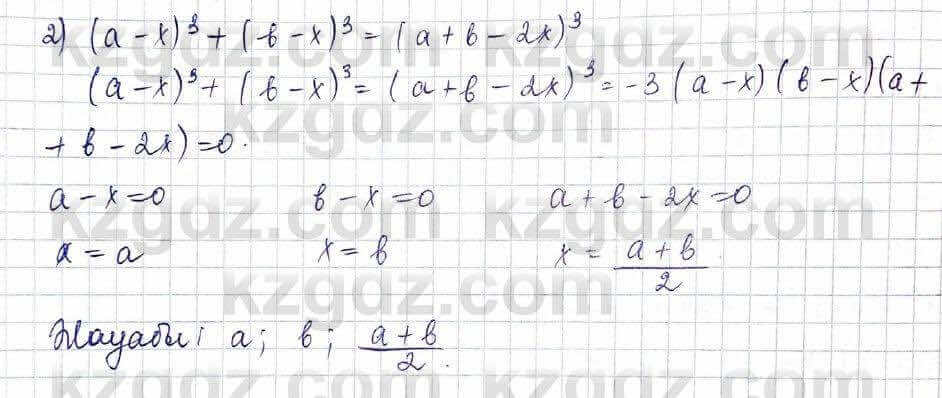 2) (a-x)³ + (в-x)³ = (a+в-2x)³
(a-x)³ + (в-x)³ = (a+в-2x)³ = -3(a-x)(в-x)(a+
+в-2x)=0.
a-x=0 в-x=0 a+в-2x=0
x=a x=в x= (a+в)/2
Жауабы: a; в; (a+в)/2.
kzgdz.com